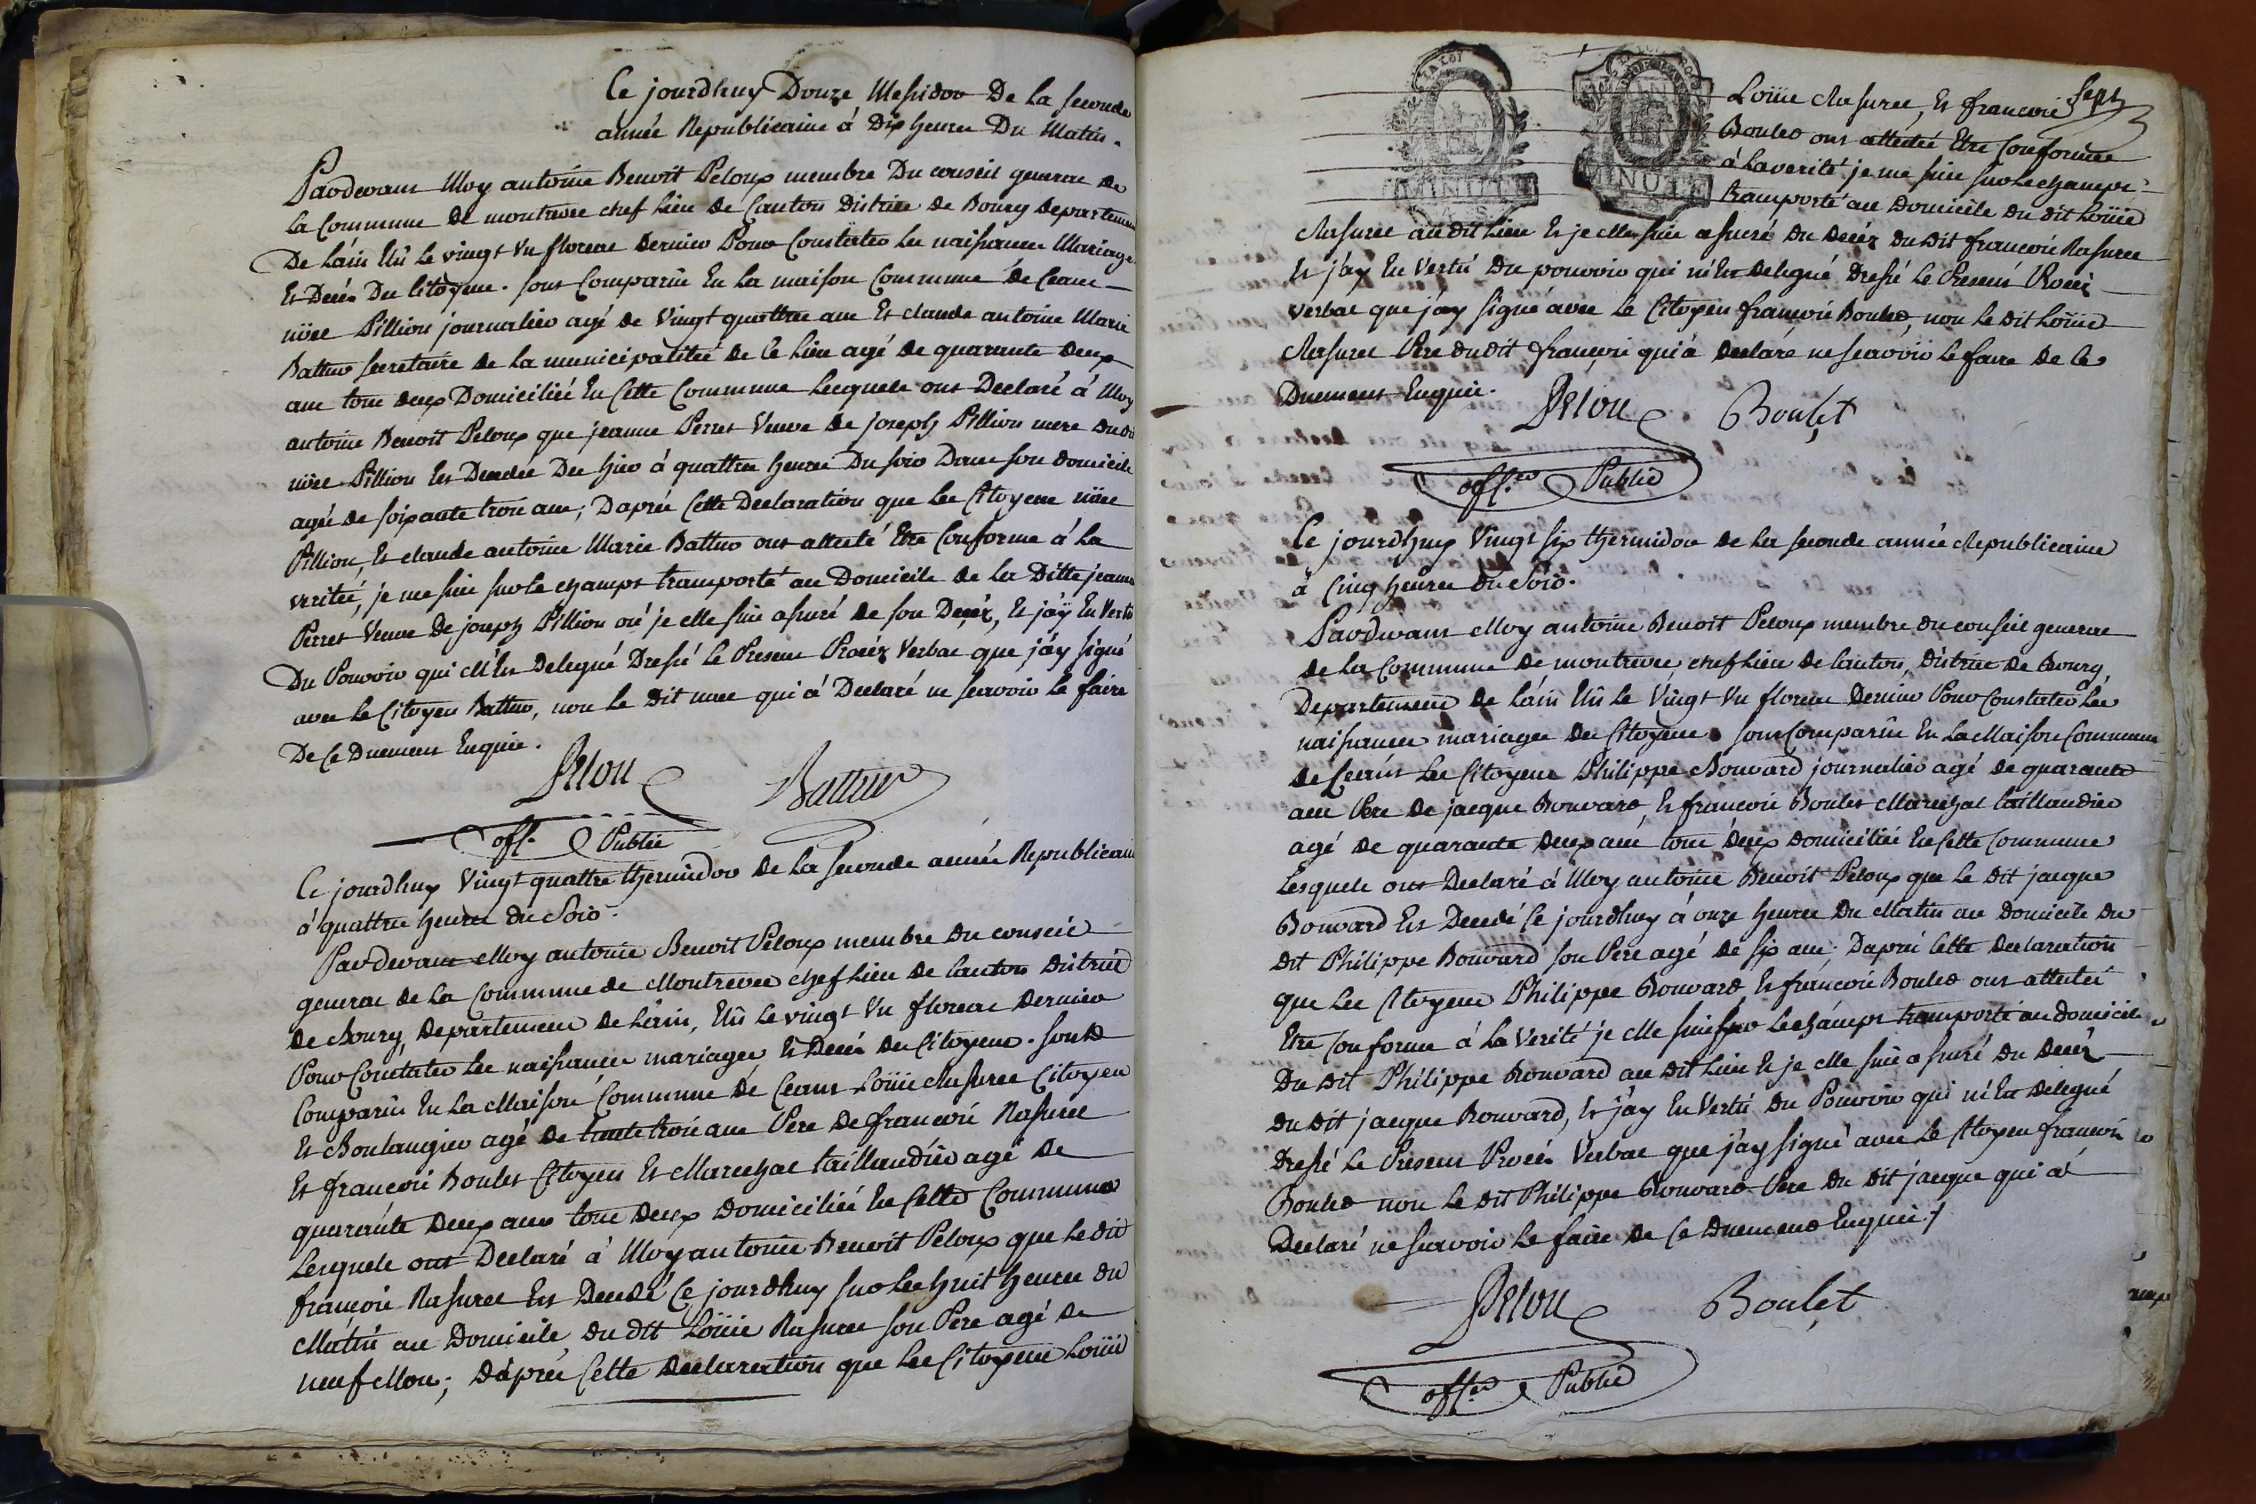 Ce jourdhuy Douze Messidor De La seconde
année Republicaine á Dix heures Du Matin.
Pardevans Moy antoine Benoit Peloux membre Du conseil general de
la Commune de montrevee chef Lieu de Canton District de Bourg Departement
De láin Elû Le vingt un floreal dernier Pour Constater les naissances Mariages
Et Decés Des Citoyens. sont Comparûs En La maison Commune de Ceans
Pillion journalier agé de Vingt quattre ans Et claude antoine Marie
Battur secretaire de la municipalitée de Ce Lieu agé de quarante deux
ans tous deux Domiciliés En Cette Commune Lesquels ont Declaré á Moy
antoine Benoit Peloux que jeanne Perret Veuve de joseph Pillion mere du dit
Pillion Est Decedée Des hier á quattre heures Du soir Dans son domicile
agée de soixante trois ans; Daprés Cette Declaration que Les Citoyens
Pillion, Et claude antoine Marie Battur ont attesté Etre Conforme á La
verité, je me suis sur le champs transporté au Domicile de La Ditte jeanne
Perret Veuve de joseph Pillion oú je Me suis assuré de son Decéz, Et j'áy En Vertu
Du Pouvoir qui M'Est Delegué Dressé Le Present Procéz Verbal que j'áy signé
avec Le Citoyen Battur, non Le Dit qui á Declaré ne scavoir Le faire
De Ce Duement Enquis.
Pelou Battur
off. Public
Ce jourdhuy Vingt quattre thermidor de La seconde année Republicaine
á quattre heures du Soir.
Pardevans Moy antoine Benoit Peloux membre du conseil
general de La Commune de Montrevee chef Lieu de Canton District
de Bourg, Departement de Láin, Elû Le vingt un floreal dernier
Pour Constater Les naissances mariages Et Decés des Citoyens. sont
Comparûs En La Maison Commune de Ceans Loüis Rasurel Citoyen
Et Boulangier agé de trente trois ans Pere de françois Rasurel
Et françois Boulet Citoyen Et Marechal taillandier agé de
quarante deux ans tous deux domiciliés En Cette Commune
Lesquels ont Declaré á Moy antoine Benoit Peloux que Le dit
françois Rasurel Est Decedé Ce jourdhuy sur Les huit heures du
Matin au Domicile du dit Loüis Rasurel son Pere agé de
neuf Mois; Dáprés Cette declaration que Les Citoyens Loüis
Sept
Loüis Rasurel, Et françois
Boulet ont attestée Etre Conforme
á La verité je me suis sur Le champs
transporté au Domicile du dit Loüis
Rasurel au dit Lieu Et je Me suis assuré du decéz du dit françois Rasurel
Et j'áy En Vertû du pouvoir qui m'Est delegué dressé Le Present Procéz
verbal que j'áy signé avec Le Citoyen françois Boulet, non Le dit Loüis
Rasurel Pere du dit françois qui á declaré ne scavoir Le faire de Ce
Duement Enquis.
Pelou Boulet
off.er Public
Ce jourdhuy Vingt six thermidor de La seconde année Republicaine
á Cinq heures du Soir.
Pardevans Moy antoine Benoit Peloux membre du conseil general
de La Commune de montrevee chef Lieu de Canton, district de Bourg,
Departement de Láin Elû Le Vingt un floreal dernier Pour Constater Les
naissances mariages des Citoyens. sont Comparûs En La Maison Commune
de Ceans Les Citoyens Philippe Bouvard journalier agé de quarante
ans Pere de jacque Bouvard, Et françois Boulet Marechal taillandier
agé de quarante deux ans tous deux domiciliés En Cette Commune
Lesquels ont Declaré á Moy antoine Benoit Peloux que Le dit jacque
Bouvard Est Decedé Ce jourdhuy á onze heures du Matin au domicile du
dit Philippe Bouvard son Pere agé de six ans. Daprés Cette declaration
que Les Citoyens Philippe Bouvard Et françois Boulet ont attestée
Etre Conforme á La Verité je Me suis sur Le champs transporté au domicile
Du dit Philippe Bouvard au dit Lieu Et je Me suis assuré du decéz
du dit jacque Bouvard, Et j'áy En Vertû du Pouvoir qui m'Est delegué
dressé Le Present Procés Verbal que j'áy signé avec Le Citoyen francois
Boulet non Le dit Philippe Bouvard Pere du dit jacque qui á
Declaré ne scavoir Le faire de Ce duement Enquis./
Pelou Boulet
off.er Public